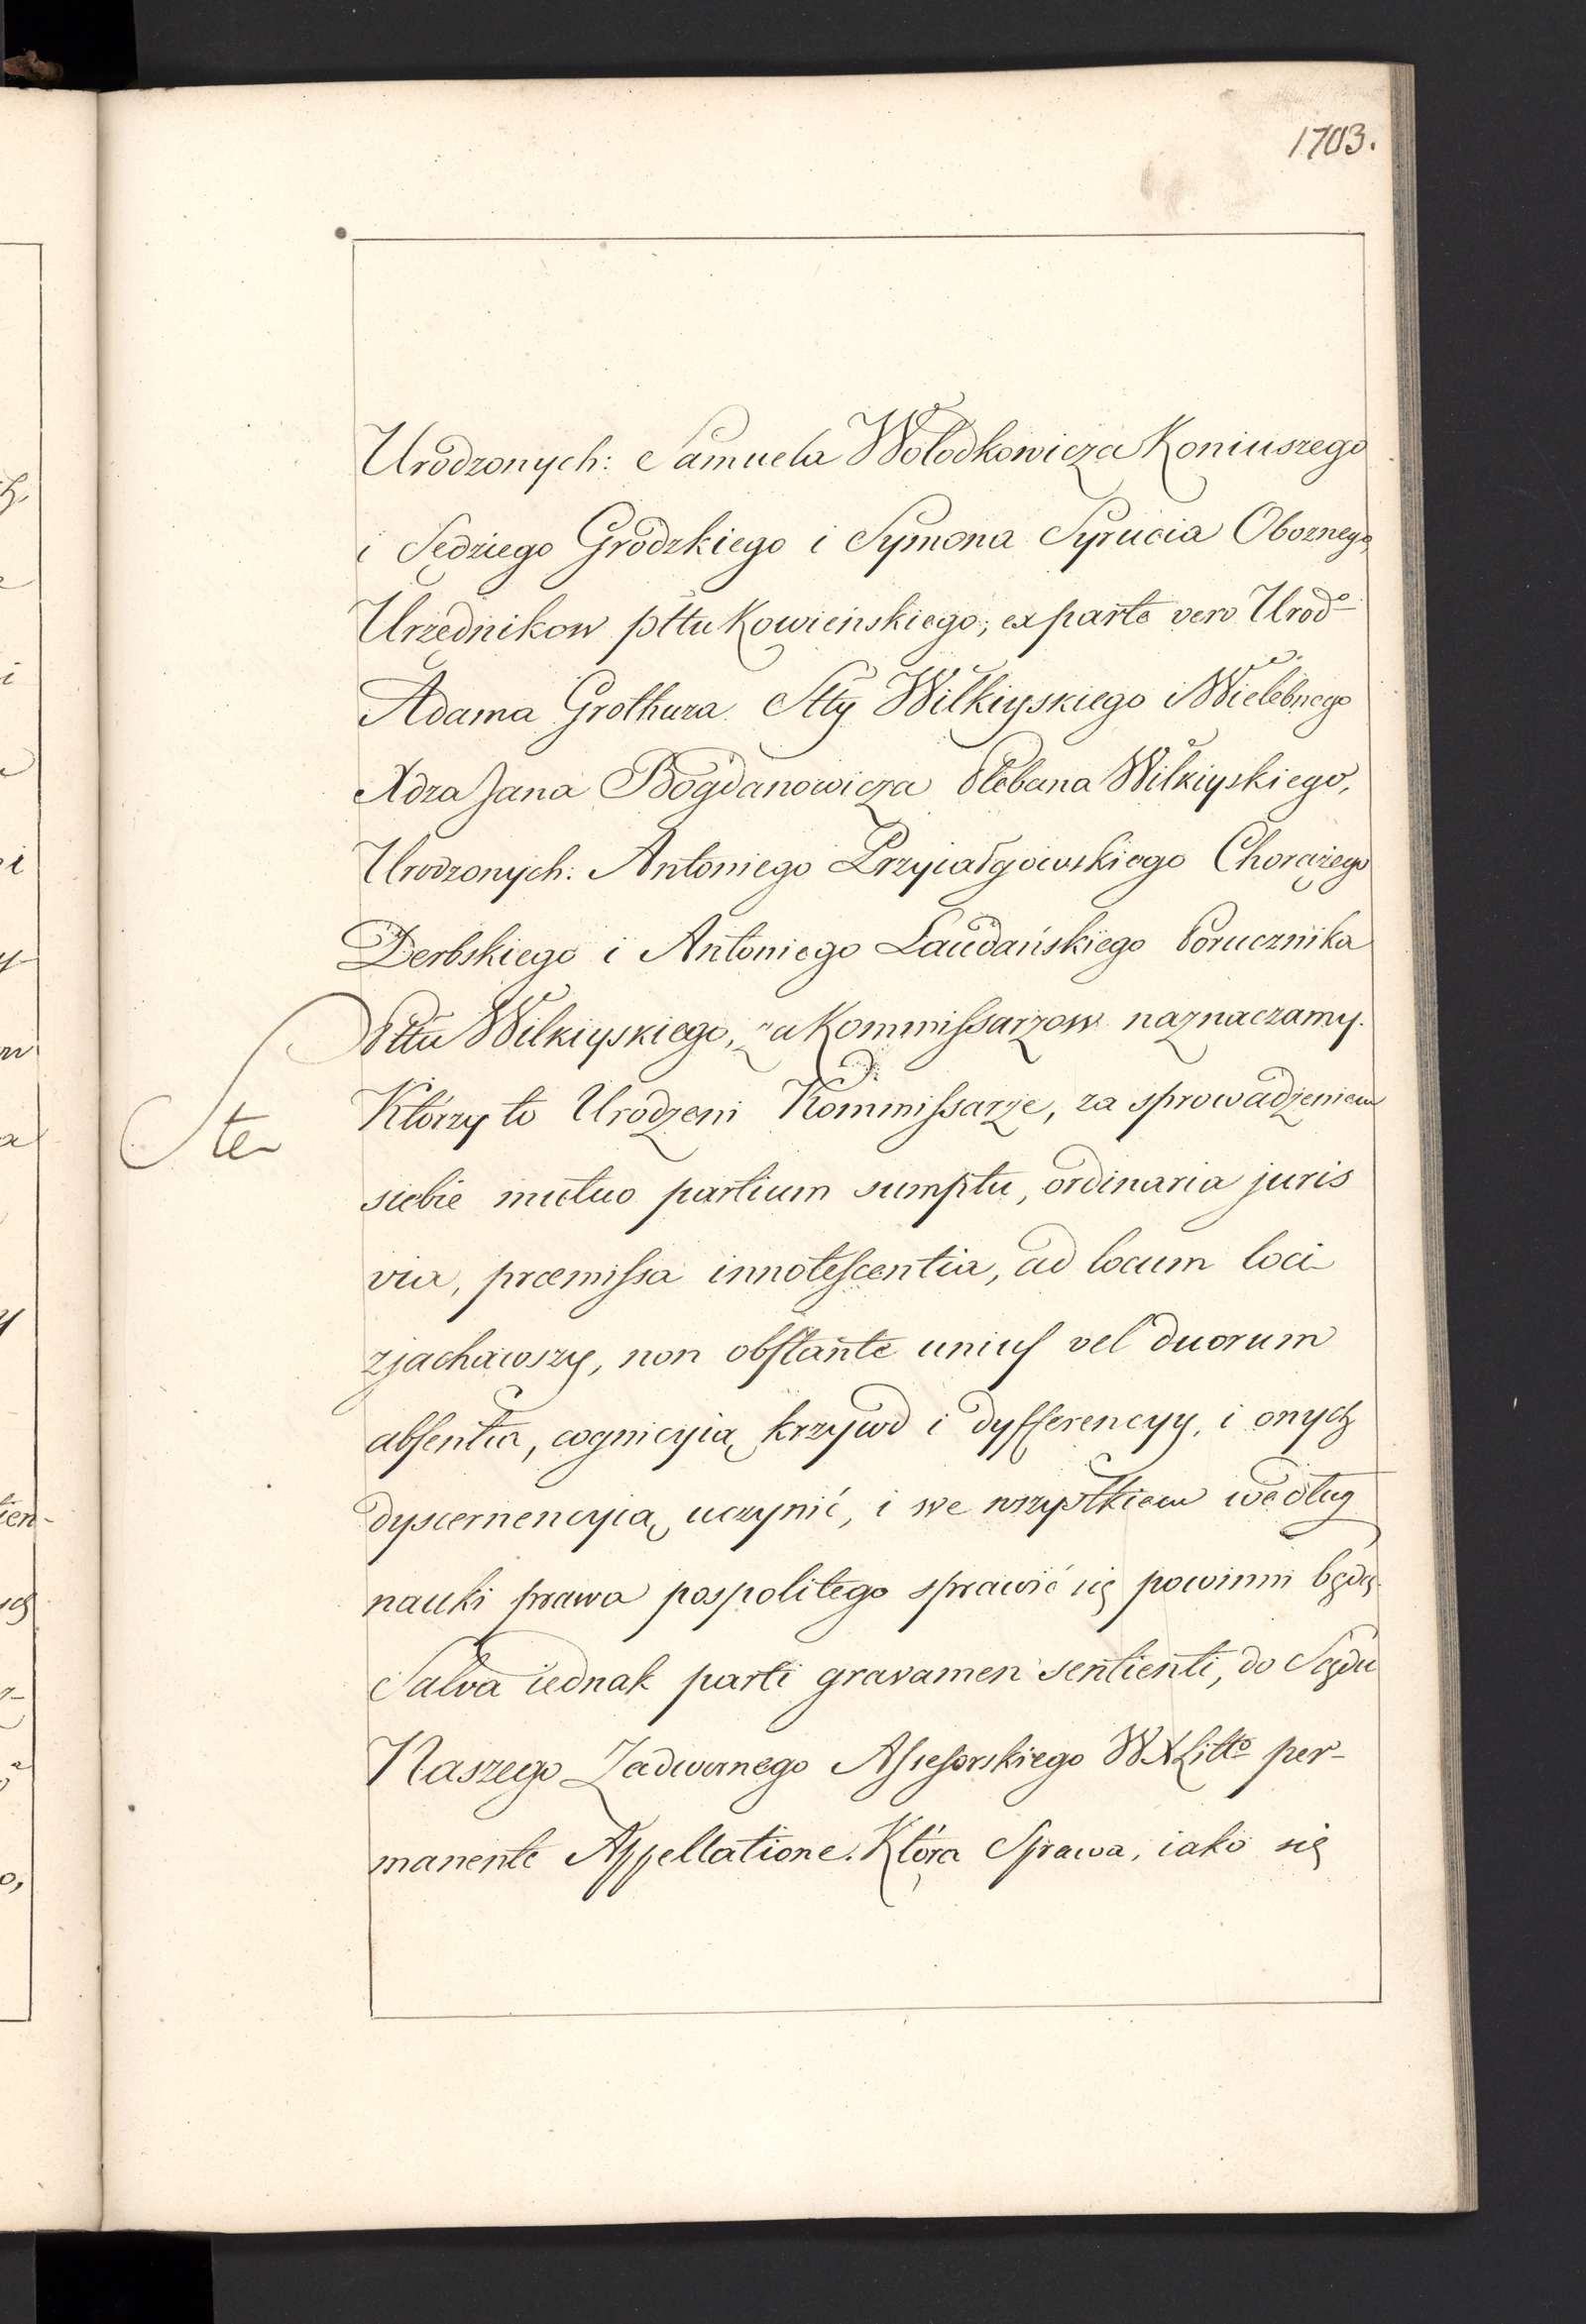 1703.
Urodzonych: Samuela Wołodkowicza Koniuszego
i Sędziego Grodzkiego i Symona Syrucia Oboznego,
Urzędnikow pttu Kowieńskiego; ex parte vero Urodo
Adama Grothuza Stty Wilkiyskiego i Wielebnego
Xdza Jana Bogdanowicza Plebana Wilkiyskiego,
Urodzonych: Antoniego Przyiałgowskiego Chorążego
Derbskiego i Antoniego Laudańskiego Porucznika
Pttu Wilkiyskiego, za Kommissarzow naznaczamy.
Którzy to Urodzeni Kommissarze, za sprowadzeniem
siebie mutuo partium sumptu, ordinaria juris
via, præmissa innotescentia, ad locum loci
zjachawszy, non obstante unius vel duorum
absentia, cognicyią krzywd i dyfferencyy, i onych
dyscernencyią uczynić, i we wszystkiem według
nauki prawa pospolitego sprawić się powinni będą.
Salva iednak parti gravamen sentienti, do Sądu
Naszego Zadwornego Assesorskiego WXLitto per-
manente Appellatione. Która Sprawa, iako się